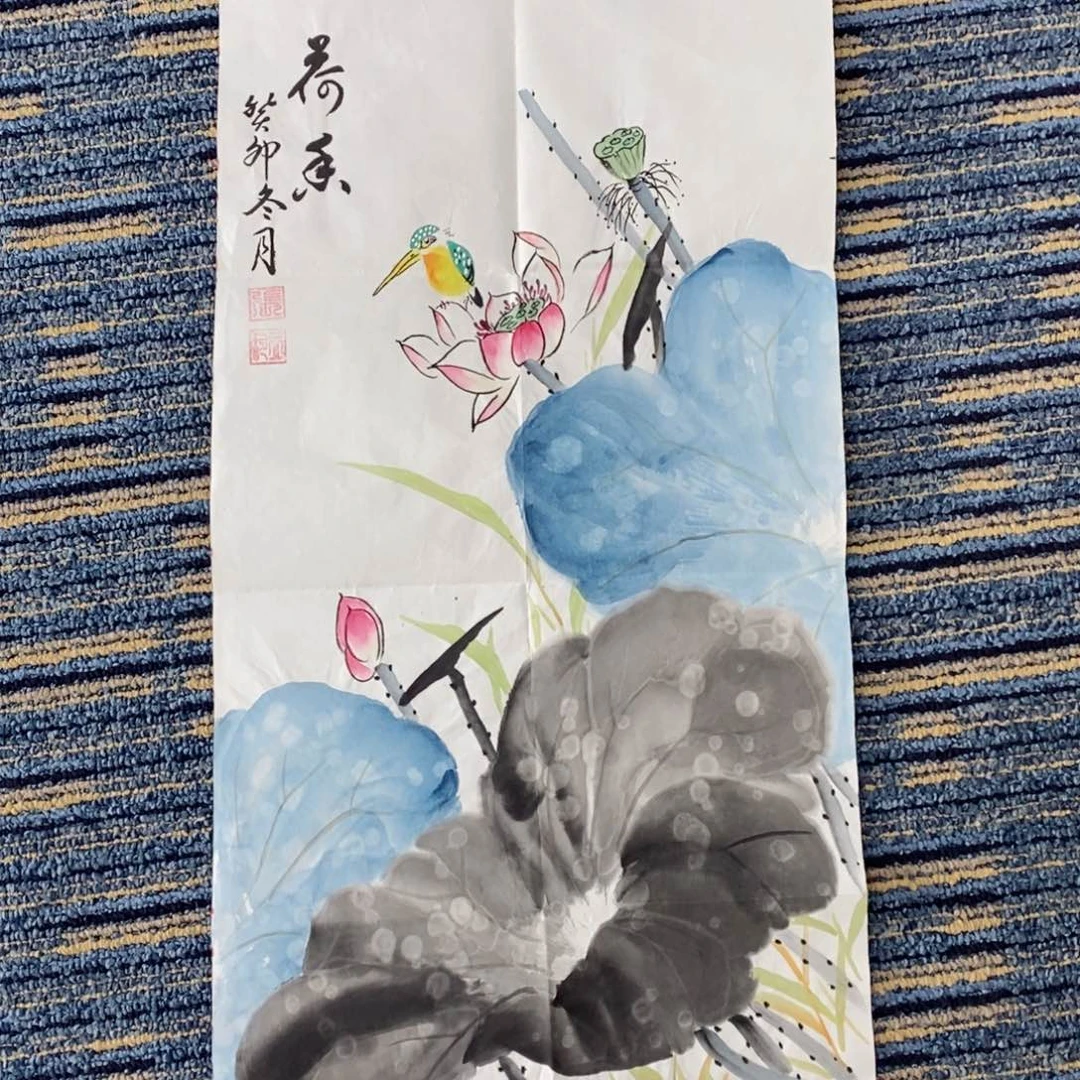 荷香
癸卯冬月